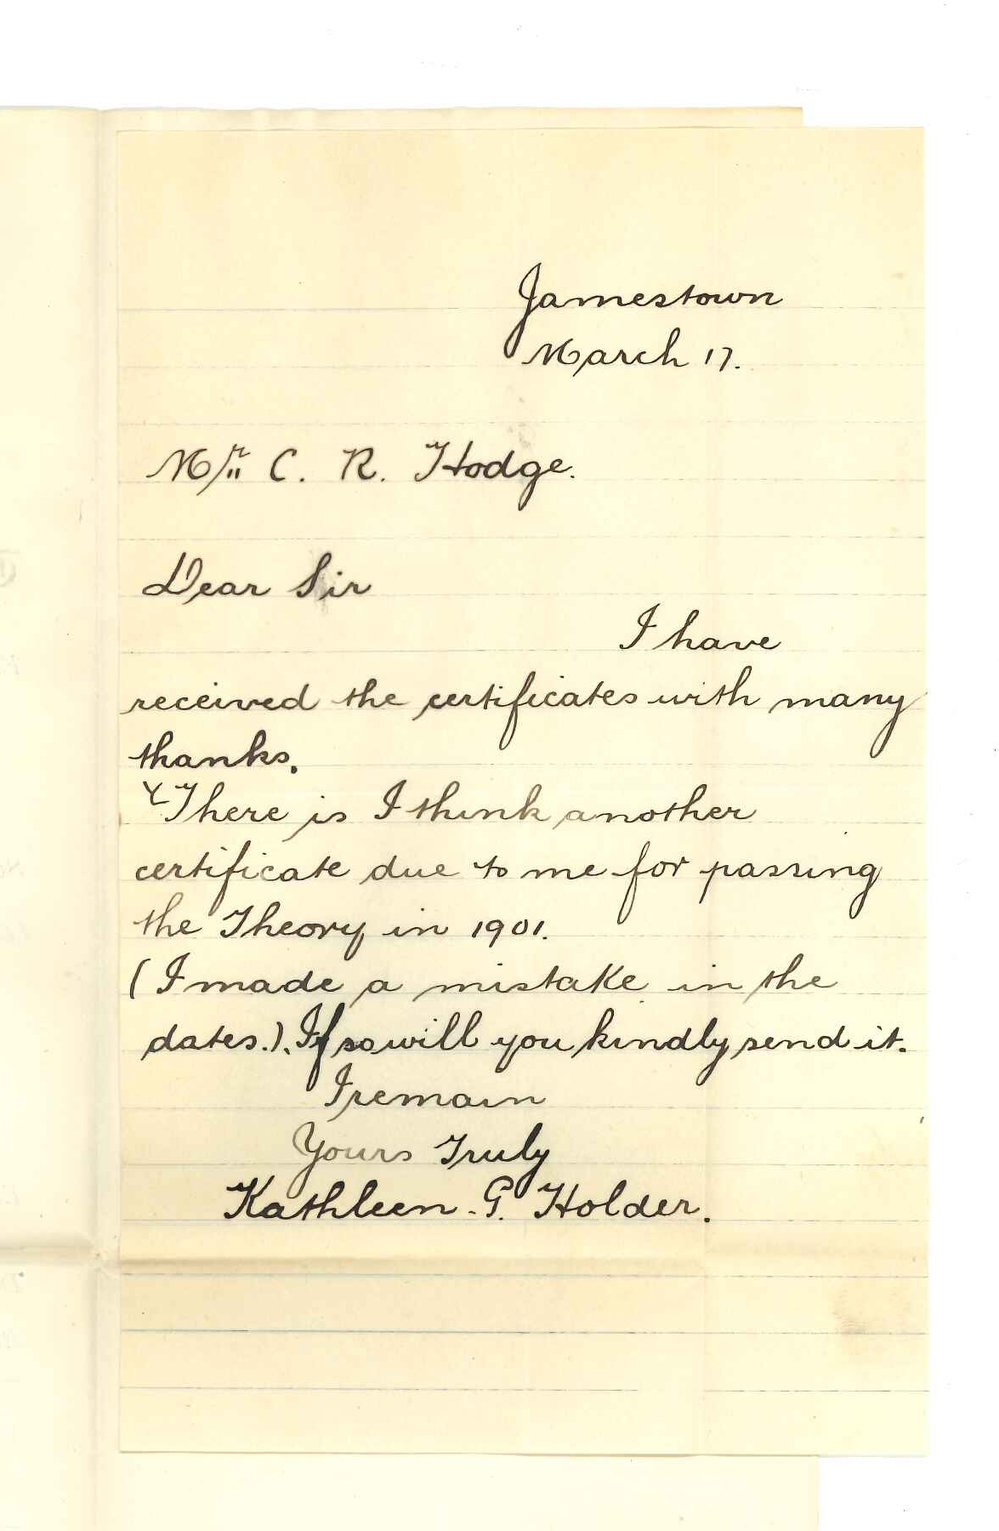 Jamestown
March 17.
Mr. C. R. Hodge.
Dear Sir
I have
received the certificates with many
thanks.
There is I think another
certificate due to me for passing
the Theory in 1901.
(I made a mistake in the
dates.). If so will you kindly send it.
I remain
Yours Truly
Kathleen. G. Holder.